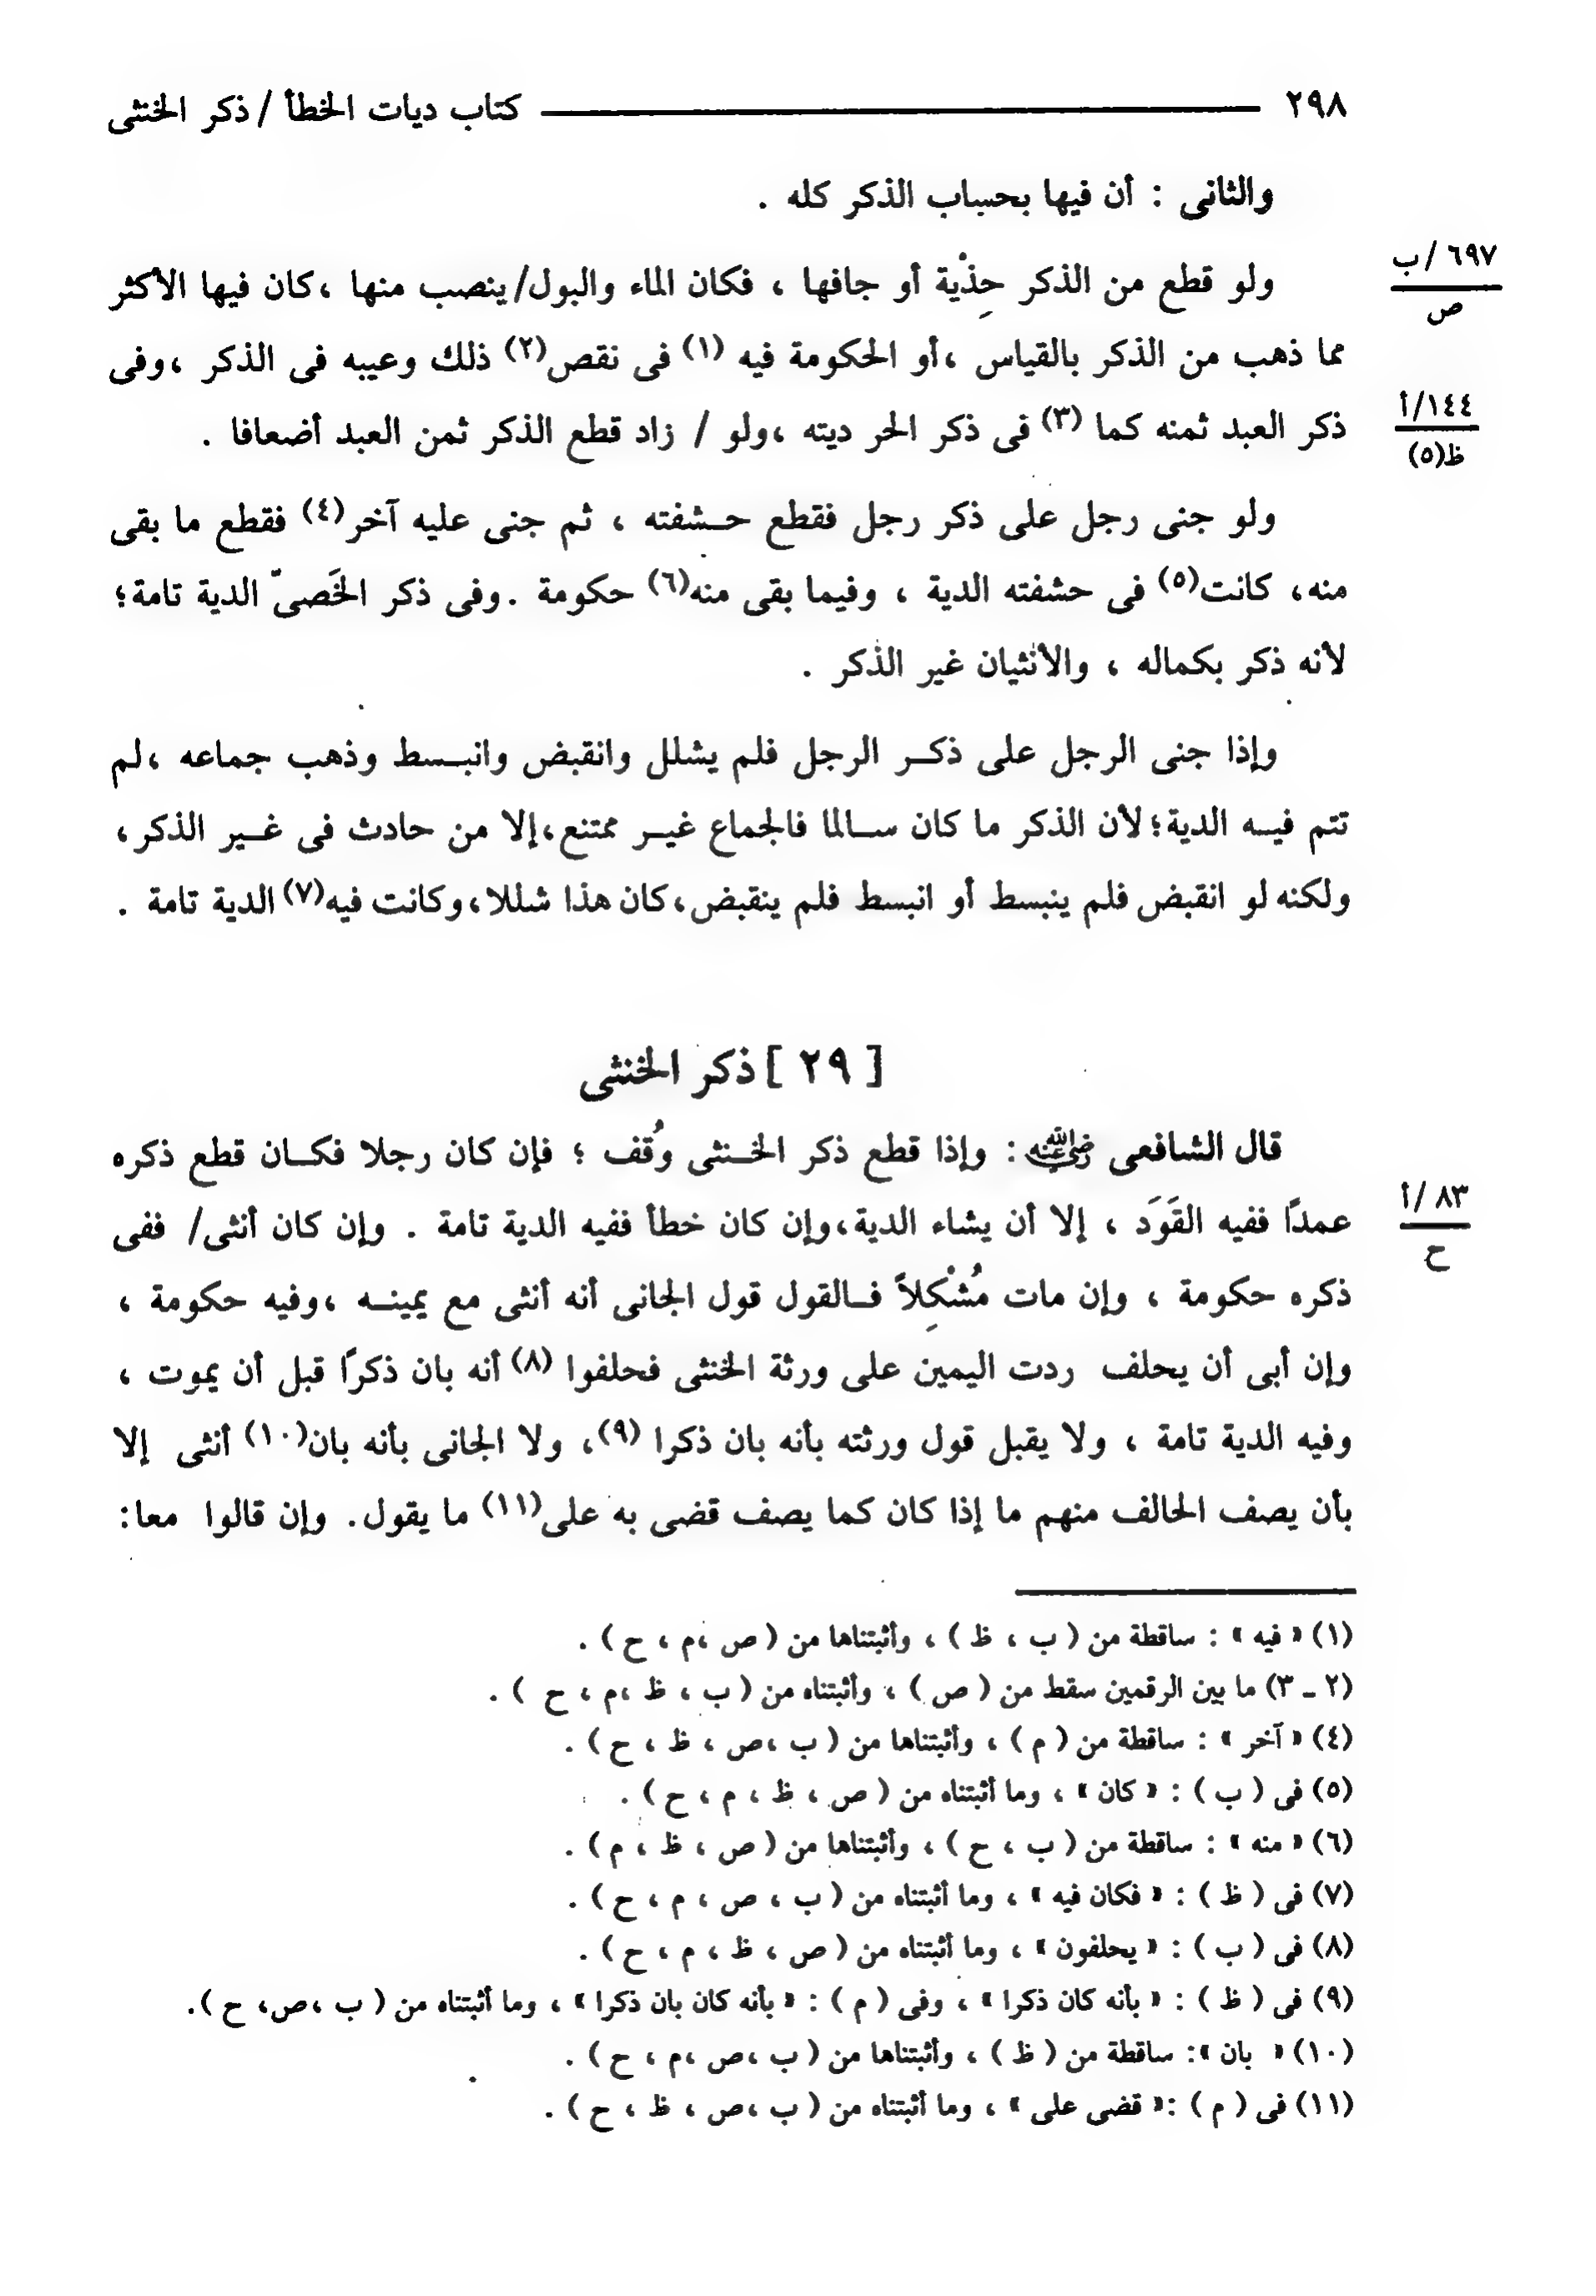 ٢٩٨ كتاب ديات الخطأ / ذكر الخنثى
والثانى : أن فيها بحساب الذكر كله .
ولو قطع من الذكر حِذْية أو جافها ، فكان الماء والبول/ينصب منها ،كان فيها الأكثر
٦٩٧ /ب
ص
مما ذهب من الذكر بالقياس ،أو الحكومة فيه (١) فى نقص(٢) ذلك وعيبه فى الذكر ،وفى
ذكر العبد ثمنه كما (٣) فى ذكر الحر ديته ،ولو / زاد قطع الذكر ثمن العبد أضعافا .
١٤٤/أ
ظ(٥)
ولو جنى رجل على ذكر رجل فقطع حشفته ، ثم جنى عليه آخر(٤) فقطع ما بقى
منه، كانت(٥) فى حشفته الدية ، وفيما بقى منه(٦) حكومة .وفى ذكر الخَصىّ الدية تامة؛
لأنه ذكر بكماله ، والأنثيان غير الذكر .
وإذا جنى الرجل على ذكر الرجل فلم يشلل وانقبض وانبسط وذهب جماعه ،لم
تتم فيه الدية؛لأن الذكر ما كان سالما فالجماع غير ممتنع،إلا من حادث فى غير الذكر،
ولكنه لو انقبض فلم ينبسط أو انبسط فلم ينقبض،كان هذا شللا،وكانت فيه(٧) الدية تامة .
[ ٢٩ ] ذكر الخنثى
قال الشافعى رضي الله عنه : وإذا قطع ذكر الخنثى وُقف ؛ فإن كان رجلا فكان قطع ذكره
عمدًا ففيه القَوَد ، إلا أن يشاء الدية،وإن كان خطأ ففيه الدية تامة . وإن كان أنثى/ ففى
٨٣ /أ
ح
ذكره حكومة ، وإن مات مُشْكِلاً فالقول قول الجانى أنه أنثى مع يمينه ،وفيه حكومة ،
وإن أبى أن يحلف ردت اليمين على ورثة الخنثى فحلفوا (٨) أنه بان ذكرًا قبل أن يموت ،
وفيه الدية تامة ، ولا يقبل قول ورثته بأنه بان ذكرا (٩)، ولا الجانى بأنه بان(١٠) أنثى إلا
بأن يصف الحالف منهم ما إذا كان كما يصف قضى به على(١١) ما يقول. وإن قالوا معا:
(١) « فيه » : ساقطة من ( ب ، ظ ) ، وأثبتناها من ( ص ،م ، ح ) .
(٢ ـ ٣) ما بين الرقمين سقط من ( ص ) ، وأثبتناه من ( ب ، ظ ،م ، ح ) .
(٤) « آخر » : ساقطة من ( م ) ، وأثبتناها من ( ب ،ص ، ظ ، ح ) .
(٥) فى ( ب ) : « كان » ، وما أثبتناه من ( ص ، ظ ، م ، ح ) .
(٦) « منه » : ساقطة من ( ب ، ح ) ، وأثبتناها من ( ص ، ظ ، م ) .
(٧) فى ( ظ ) : « فكان فيه » ، وما أثبتناه من ( ب ، ص ، م ، ح ) .
(٨) فى ( ب ) : « يحلفون » ، وما أثبتناه من ( ص ، ظ ، م ، ح ) .
(٩) فى ( ظ ) : « بأنه كان ذكرا » ، وفى ( م ) : « بأنه كان بان ذكرا » ، وما أثبتناه من ( ب ،ص، ح ).
(١٠) « بان »: ساقطة من ( ظ ) ، وأثبتناها من ( ب ،ص ،م ، ح ) .
(١١) فى ( م ) :« قضى على » ، وما أثبتناه من ( ب ،ص ، ظ ، ح ) .